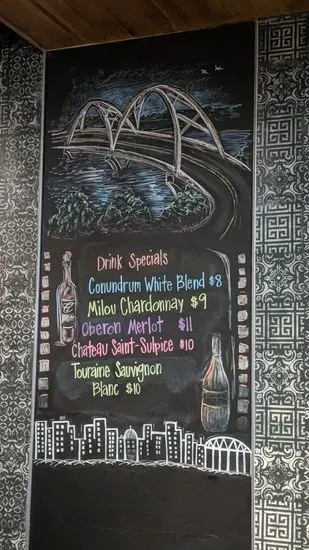 Drink Specials
Conundrum White Blend $8
Milou Chardonnay $9
Oberon Merlot $11
Chateau Saint-Sulpice $10
Touraine Sauvignon
Blanc $10